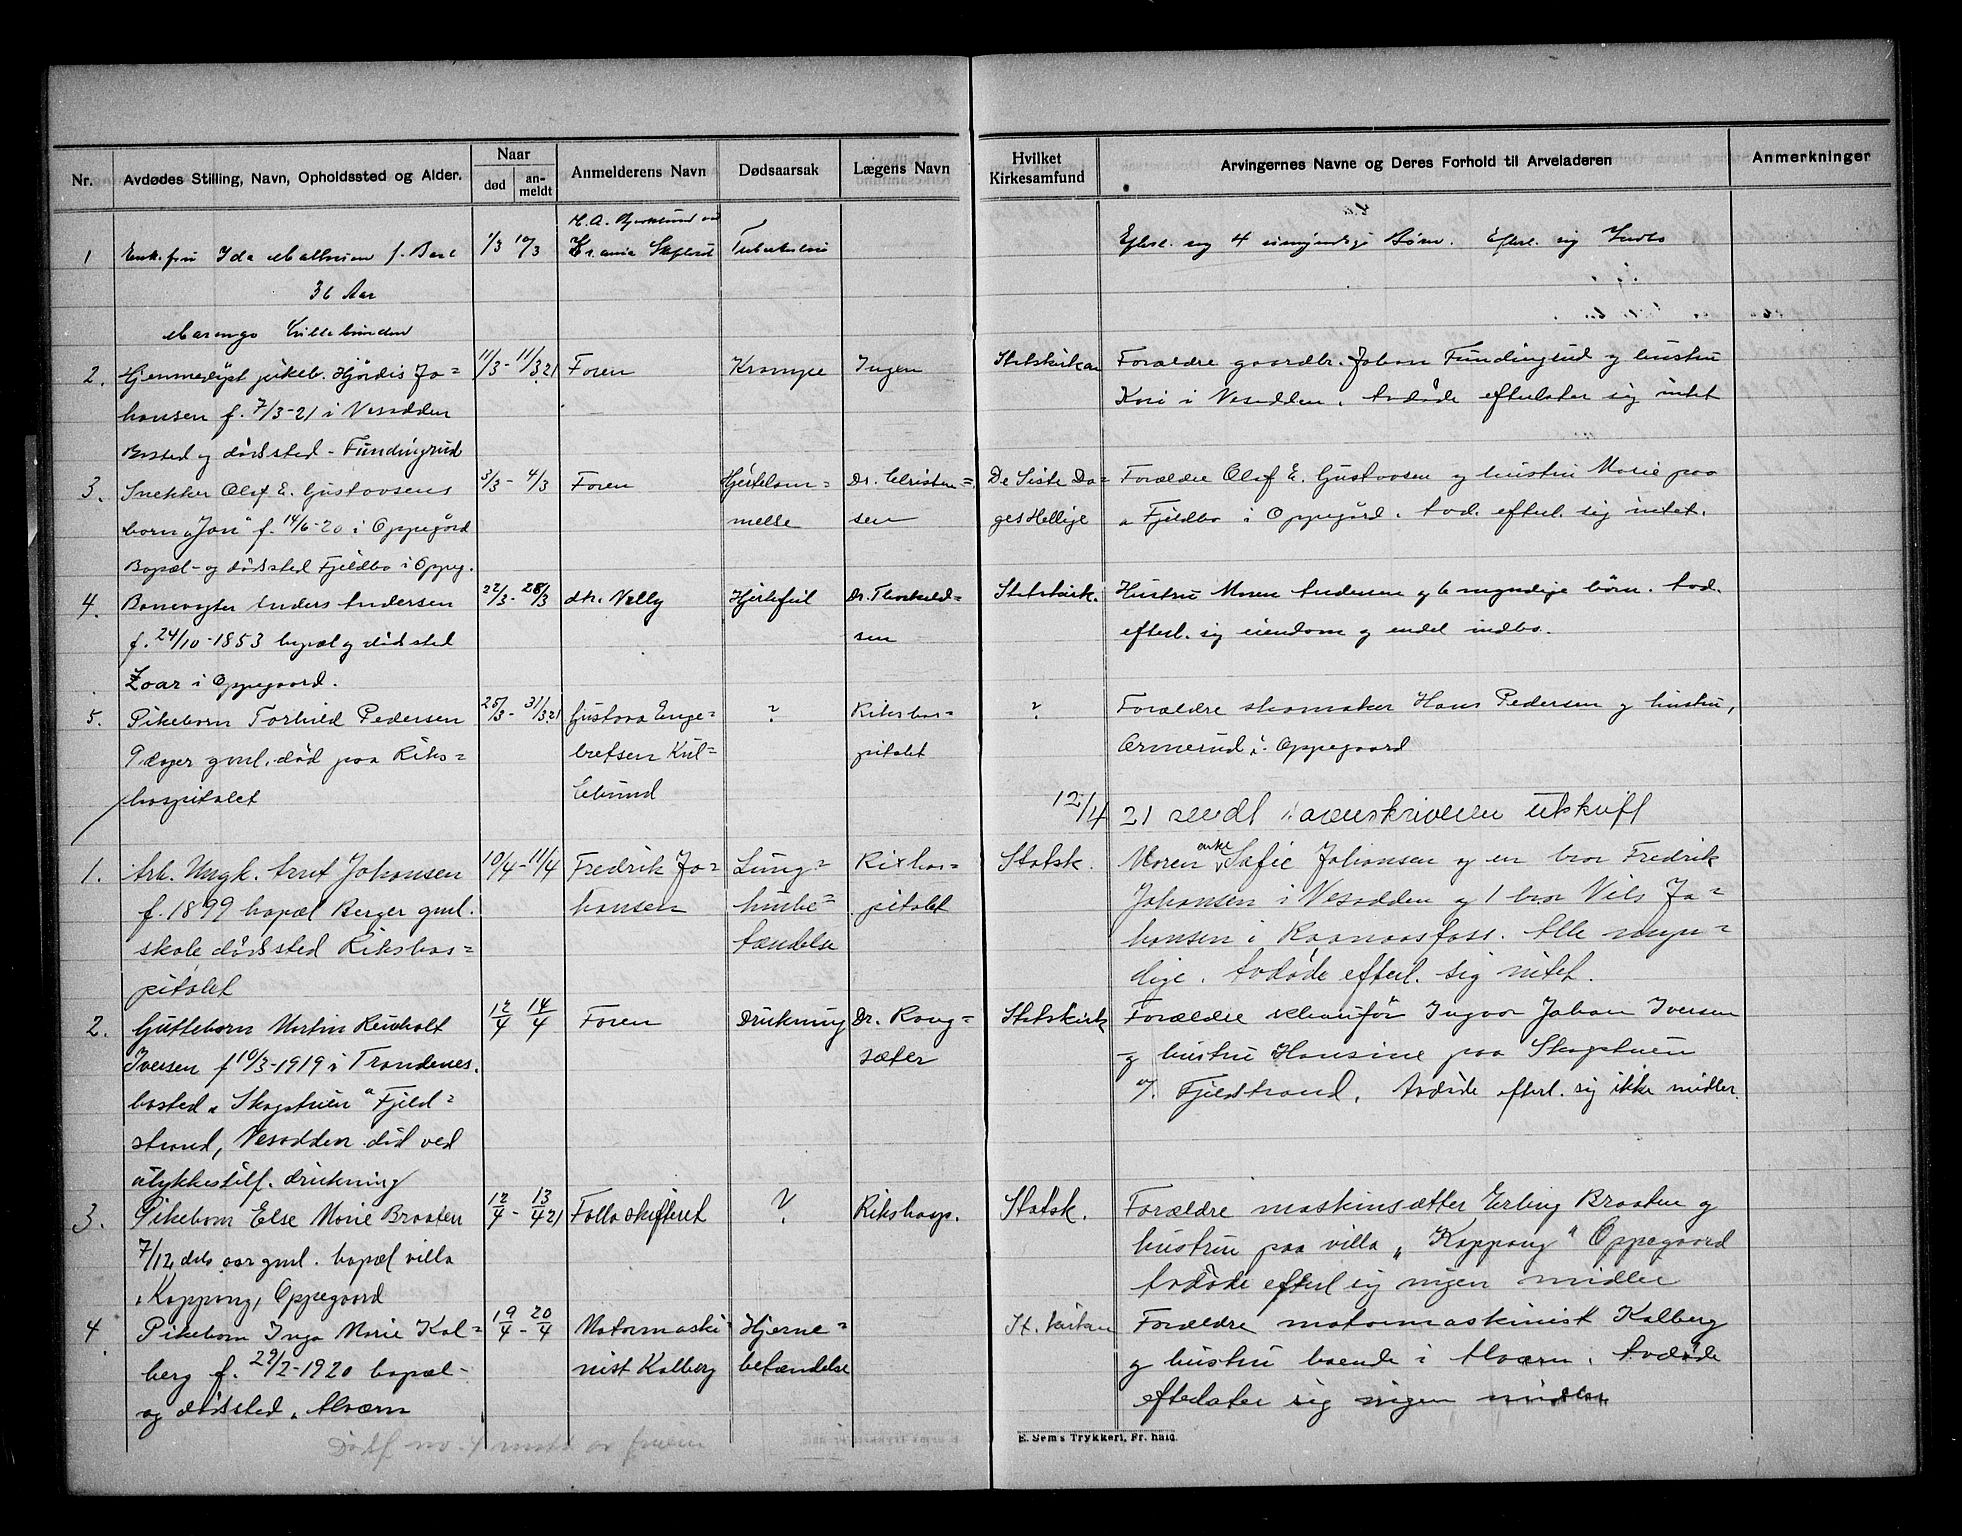 Nr.
Avdødes Stilling, Navn, Opholdssted og Alder.
Naar
død
an-
meldt
Anmelderens Navn
Dødsaarsak
Lægens Navn
Hvilket
Kirkesamfund
Arvingernes Navne og Deres Forhold til Arveladeren
Anmerkninger
1
Enkefru Ida Mathisen f.
36 Aar
Marengo
1/3 10/3
H. A. Bjerklund
Tuberkulose
Efterl. sig 4 umyndige Børn. Efterl. sig Indbo
2.
Hjemmedøpt pikeb. Hjørdis Jo=
hansen f. 7/3-21 i Nesodden
Bosted og dødssted - Fundingrud
11/3 - 11/3 21
Faren
Krampe
Ingen
Statskirken
Forældre gaardbr. Johan Fundingrud og hustru
Kari i Nesodden. Avdøde efterlater sig intet
3.
Snekker Olaf E. Gustavsens
barn "Jon" f. 14/6-20 i Oppegård
Bopæl- og dødssted Fjeldbo i Oppeg.
3/3 - 4/3
Faren
Hjertelam=
melse
Dr. Christen=
sen
De Siste Da=
ges Hellige
Forældre Olaf E. Gustavsen og hustru Marie paa
" Fjeldbo i Oppegård. Avd. efterl. sig intet.
4.
Banevogter Anders Andersen
f. 24/10-1853 bopæl og dødssted
Zoar i Oppegaard.
22/3 - 28/3
dtr. Nelly
Hjertefeil
Dr. Thorkild=
sen
Statskirk.
Hustru Maren Andersen og 6 myndige børn. Avd.
efterl. sig eiendom og endel indbo.
5.
Pikebarn Torhild Pedersen
9 dager gml. død paa Riks=
hospitalet
25/3 - 31/3 21
Gustava Enge=
bretsen Kul=
?
Rikshos=
pitalet
?
Forældre skomaker Hans Pedersen og hustru,
Ormerud i Oppegaard
12/4 21 sendt sorenskriveren utskrift
1.
Arb. Ungk. Arnt Johansen
f. 1899 bopæl Berger gml.
skole dødssted Rikshos=
pitalet
10/4 - 11/4
Fredrik Jo=
hansen
Lung=
hinbe=
tændelse
Rikshos=
pitalet
Statsk.
Moren enke Sofie Johansen og en bror Fredrik
Johansen i Nesodden og 1 bror Nils Jo=
hansen i Raanaasfoss. Alle myn=
dige. Avdøde efterl. sig intet.
2.
Guttebarn Martin Reinholt
Iversen f 10/3-1919 i Trondenes.
bosted "Skogstuen" Fjeld=
strand, Nesodden død ved
ulykkestilf. drukning
12/4 14/4
Faren
Drukning
Dr. Rong=
sæter
Statskirk
Forældre chauffør Ingvar Johan Iversen
og hustru Hansine paa Skogstuen
v/ Fjeldstrand. Avdøde efterl. sig ikke midler.
3.
Pikebarn Else Marie Braaten
7/12 dels aar gml. bopæl villa
"Koppang, Oppegaard
12/4 - 13/4 21
Follo skifteret
?
Rikshosp.
Statsk.
Forældre maskinsætter Erling Braaten og
hustru paa villa "Koppang" Oppegaard
Avdøde efterl sig ingen midler
4
Pikebarn Inga Marie Kal=
berg f. 29/2-1920 bopæl-
og dødssted, Alværn
19/4 - 20/4
Motormaski
nist Kalberg
Hjerne=
betændelse
St. kirken
Forældre motormaskinist Kalberg
og hustru boende i Alværn. Avdøde
efterlater sig ingen midler
Dødsf no. 4
E. Sem's Trykkeri, Fr.hald.